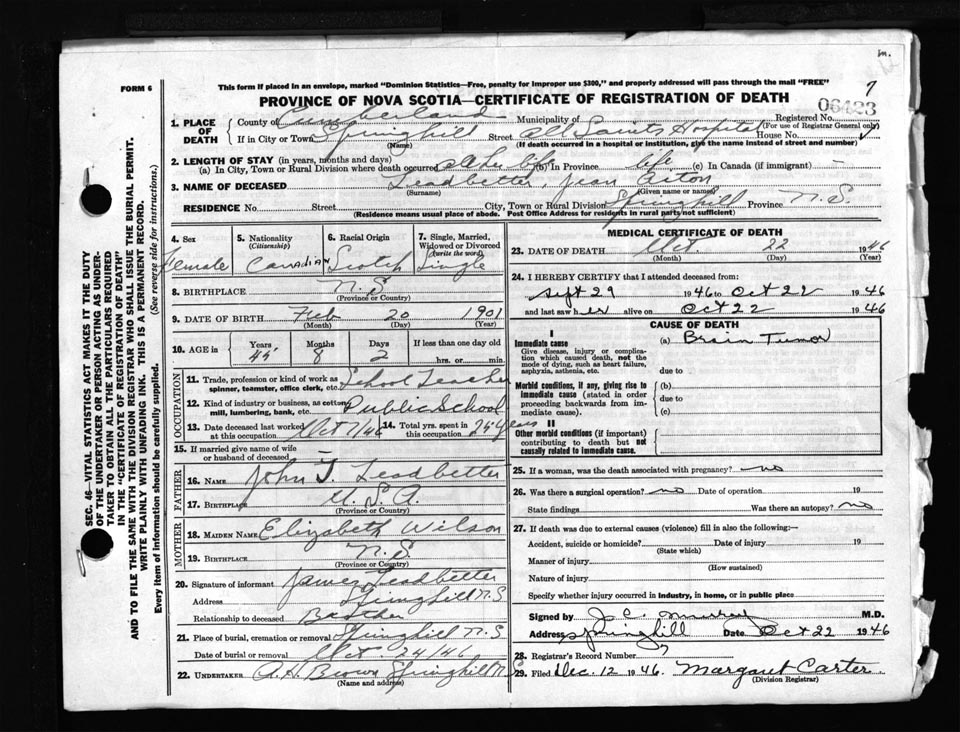 m.
FORM 6
This form if placed in an envelope, marked "Dominion Statistics—Free, penalty for improper use $300," and properly addressed will pass through the mail "FREE"
7
PROVINCE OF NOVA SCOTIA—CERTIFICATE OF REGISTRATION OF DEATH
06423
1. PLACE OF DEATH
County of Cumberland Municipality of Registered No.
(For use of Registrar General only)
If in City or Town Springhill Street All Saints Hospital House No.
(Name) (If death occurred in a hospital or institution, give the name instead of street and number)
2. LENGTH OF STAY (in years, months and days)
(a) In City, Town or Rural Division where death occurred all her life (b) In Province life (c) In Canada (if immigrant) —
3. NAME OF DECEASED Leadbetter, Jean Aiton
(Surname) (Given name or names)
RESIDENCE No. Street City, Town or Rural Division Springhill Province N.S.
(Residence means usual place of abode. Post Office Address for residents in rural parts not sufficient)
4. Sex
Female
5. Nationality (Citizenship)
Canadian
6. Racial Origin
Scotch
7. Single, Married, Widowed or Divorced (write the word)
Single
8. BIRTHPLACE N.S
(Province or Country)
9. DATE OF BIRTH Feb 20 1901
(Month) (Day) (Year)
10. AGE in Years Months Days If less than one day old
45 8 2 hrs. or min.
OCCUPATION
11. Trade, profession or kind of work as spinner, teamster, office clerk, etc. School Teacher
12. Kind of industry or business, as cotton mill, lumbering, bank, etc. Public School
13. Date deceased last worked at this occupation Oct 7/46 14. Total yrs. spent in this occupation 25 years
15. If married give name of wife or husband of deceased —
FATHER
16. NAME John T. Leadbetter
17. BIRTHPLACE U.S.A.
(Province or Country)
MOTHER
18. MAIDEN NAME Elizabeth Wilson
19. BIRTHPLACE N.S
(Province or Country)
20. Signature of informant James Leadbetter
Address Springhill N.S
Relationship to deceased Brother
21. Place of burial, cremation or removal Springhill N.S
Date of burial or removal Oct 24/46
22. UNDERTAKER A.H. Brown Springhill N.S
(Name and address)
MEDICAL CERTIFICATE OF DEATH
23. DATE OF DEATH Oct 22 1946
(Month) (Day) (Year)
24. I HEREBY CERTIFY that I attended deceased from:
Sept 29 1946 to Oct 22 1946
and last saw her alive on Oct 22 1946
CAUSE OF DEATH
I
Immediate cause (a) Brain Tumor
Give disease, injury or complication which caused death, not the mode of dying, such as heart failure, asphyxia, asthenia, etc.
due to
Morbid conditions, if any, giving rise to immediate cause (stated in order proceeding backwards from immediate cause).
(b)
due to
(c)
II
Other morbid conditions (if important) contributing to death but not causally related to immediate cause.
25. If a woman, was the death associated with pregnancy? no
26. Was there a surgical operation? no Date of operation 19
State findings Was there an autopsy? no
27. If death was due to external causes (violence) fill in also the following:—
Accident, suicide or homicide? Date of injury 19
(State which)
Manner of injury
(How sustained)
Nature of injury
Specify whether injury occurred in industry, in home, or in public place
Signed by J.C. Murray M.D.
Address Springhill Date Oct 22 1946
28. Registrar's Record Number 7
29. Filed Dec. 12 1946. Margaret Carter
(Division Registrar)
SEC. 46—VITAL STATISTICS ACT MAKES IT THE DUTY
OF THE UNDERTAKER OR PERSON ACTING AS UNDERTAKER
TO OBTAIN ALL THE PARTICULARS REQUIRED
IN THE "CERTIFICATE OF REGISTRATION OF DEATH"
AND TO FILE THE SAME WITH THE DIVISION REGISTRAR WHO SHALL ISSUE THE BURIAL PERMIT.
WRITE PLAINLY WITH UNFADING INK. THIS IS A PERMANENT RECORD.
Every item of information should be carefully supplied. (See reverse side for instructions.)